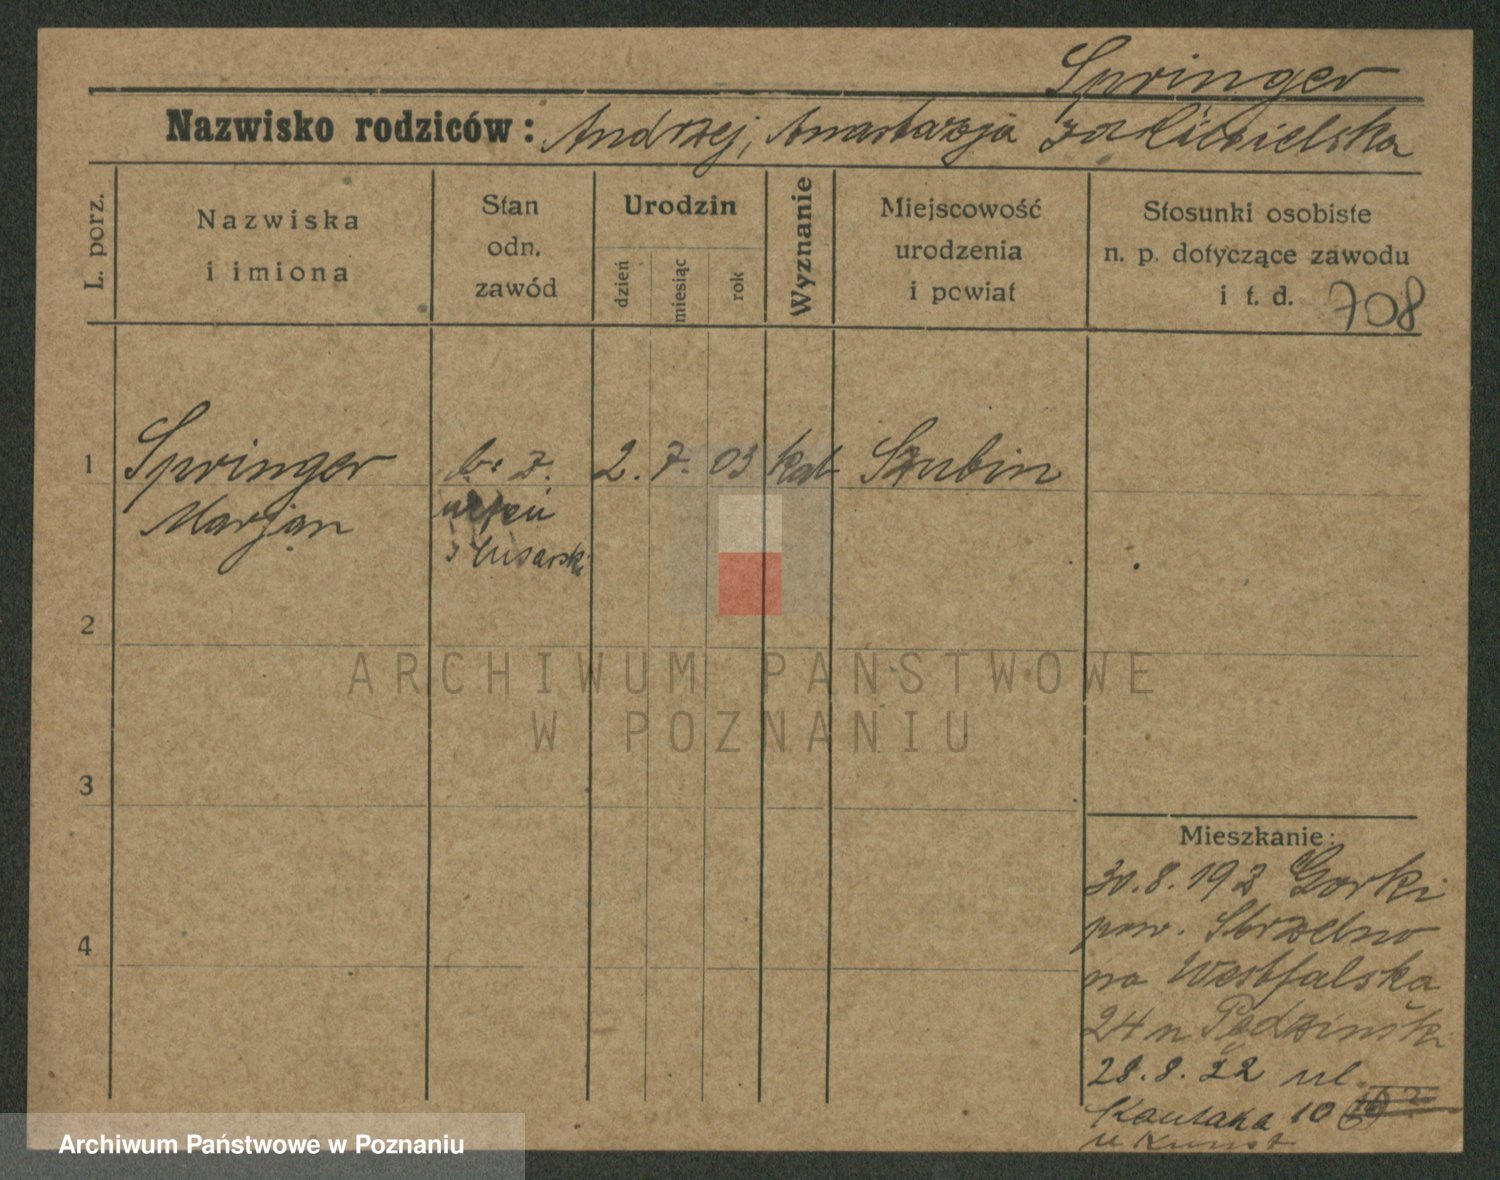 Springer
Nazwisko rodziców: Andrzej, Anastazja
L. porz.
Nazwiska
i imiona
Stan
odn.
zawód
Urodzin
dzień
miesiąc
rok
Wyznanie
Miejscowość
urodzenia
i powiat
Stosunki osobiste
n. p. dotyczące zawodu
i t. d. 708
1 Springer b. z. 2. 7. 03 kat Szubin
Marjan uczeń
ślusarski
2
ARCHIWUM PAŃSTWOWE
W POZNANIU
3
Mieszkanie:
30.8.192 Gorki
pow. Strzelno
na Westfalska
24
4
28.8.22 ul.
Kantaka 10
u Kunst
Archiwum Państwowe w Poznaniu